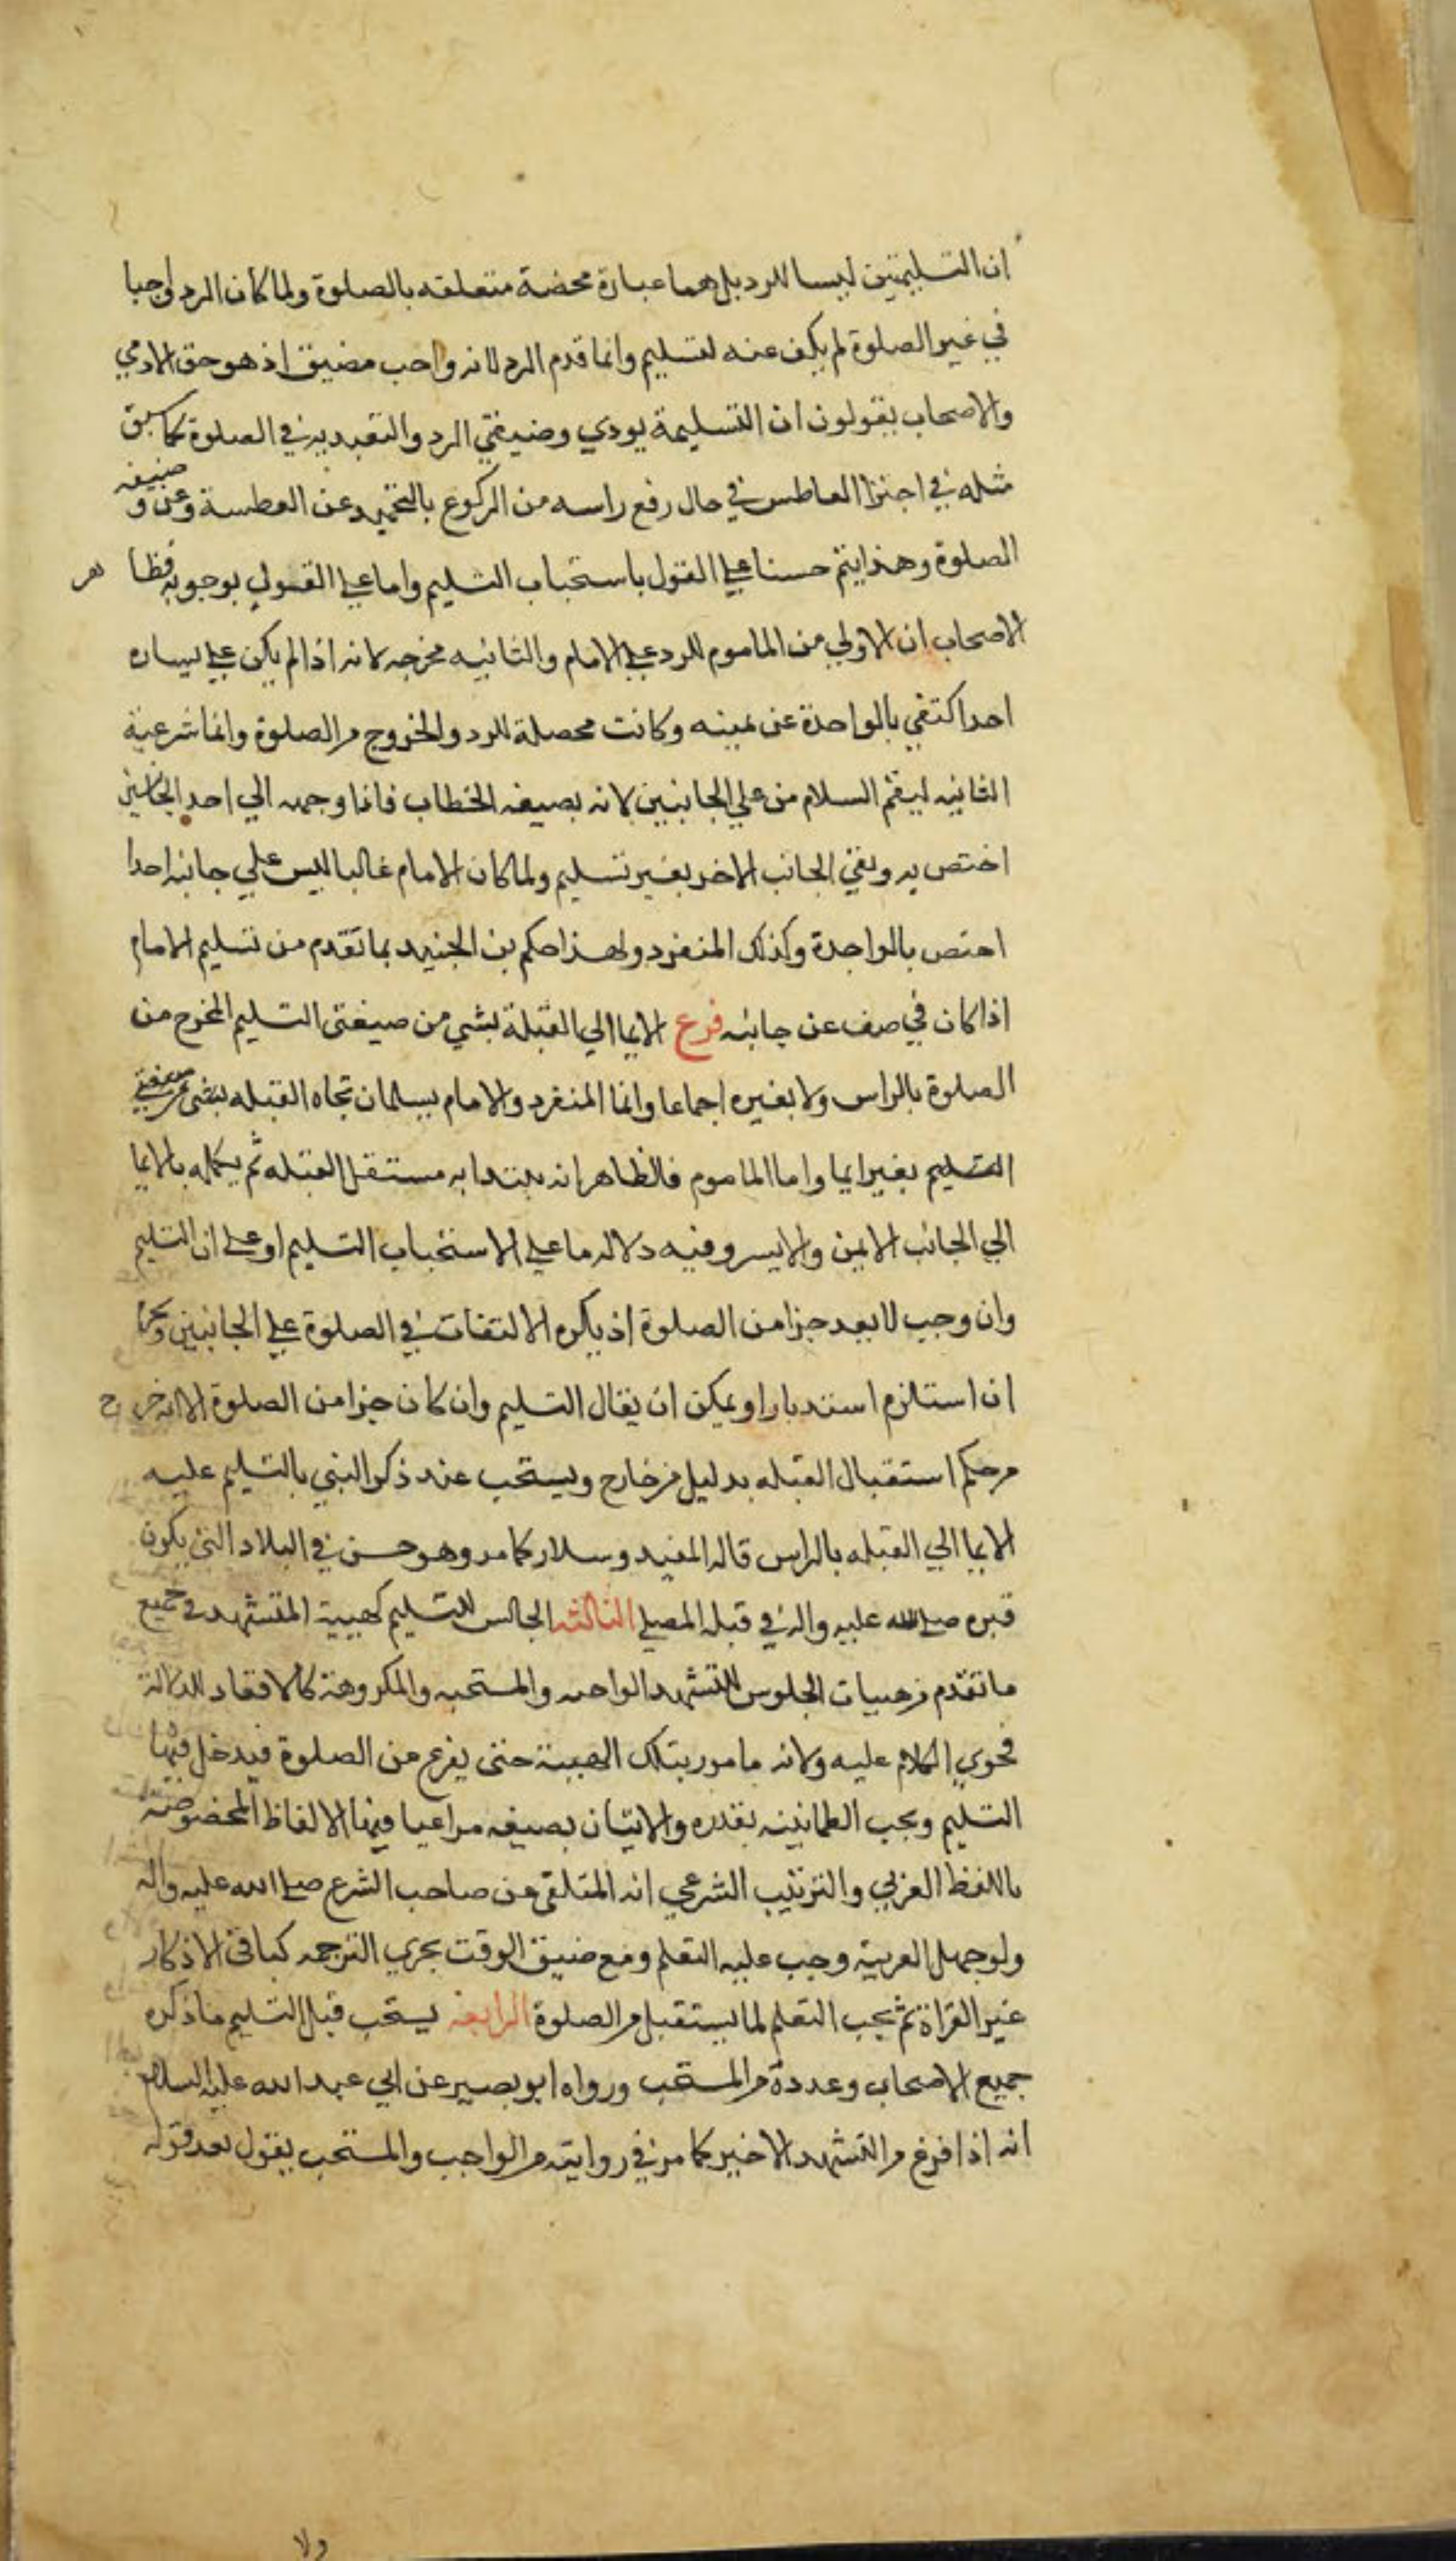 ان التسليمتين ليسا للرد بل هما عبارة محضة متعلقه بالصلوة ولما كان الرد واجبا
في غير الصلوة لم يكف عنه لتسليم وانما قدم الرد لانه واجب مضيق اذ هو حق الادمي
والاصحاب يقولون ان التسليمة يودي وضيفتي الرد والتعبد به في الصلوة كما سبق
مثله في اجتزا العاطس في حال رفع راسه من الركوع بالتحميد عن العطسة وعن وضيفه
الصلوة وهذا يتم حسنا علي القول باستحباب التسليم واما علي القول بوجوبه فظاهر
الاصحاب ان الاولي من الماموم للرد علي الامام والثانيه مخرجه لانه اذا لم يكن علي يساره
احد اكتفي بالواحدة عن يمينه وكانت محصلة للرد والخروج من الصلوة وانما شرعية
الثانيه ليعم السلام من علي الجانبين لانه بصيغه الخطاب فاذا وجهه الي احد الجانبين
اختص به وبقي الجانب الاخر بغير تسليم ولما كان الامام غالبا ليس علي جانبه احدا
اختص بالواحدة وكذلك المنفرد ولهذا حكم بن الجنيد بما تقدم من تسليم الامام
اذا كان في صف عن جانبه فرع الايما الي القبلة بشي من صيغتي التسليم المخرج من
الصلوة بالراس ولا بغيره اجماعا وانما المنفرد والامام يسلمان تجاه القبله بشي من صيغتي
التسليم بغير ايما واما الماموم فالظاهر انه يبتدا به مستقبل القبله ثم يكمله بالايما
الي الجانب الايمن والايسر وفيه دلاله ما علي الاستحباب التسليم او علي ان التسليم
وان وجب لا يعد جزا من الصلوة اذ يكره الالتفات في الصلوة علي الجانبين ويحرم
ان استلزم استدبارا ويمكن ان يقال التسليم وان كان جزا من الصلوة الا انه خرج
من حكم استقبال القبله بدليل من خارج ويستحب عند ذكر النبي بالتسليم عليه
الايما الي القبله بالراس قاله المفيد وسلار كما مر وهو حسن في البلاد التي يكون
قبره صلي الله عليه واله في قبله المصلي الثالثه الجالس للتسليم كهيية المتشهد في جميع
ما تقدم من هييات الجلوس للتشهد الواجبه والمستحبه والمكروهة كالاقعاد لدلالة
فحوي الكلام عليه ولانه مامور بتلك الهيية حتى يفرغ من الصلوة فيدخل فيها
التسليم ويجب الطمانينه بقدره والاتيان بصيغه مراعيا فيها الالفاظ المخصوصه
باللفظ العربي والترتيب الشرعي انه المتلقى عن صاحب الشرع صلي الله عليه واله
ولو جهل العربية وجب عليه التعلم ومع ضيق الوقت يجزي الترجمه كباقي الاذكار
غير القراة ثم يجب التعلم لما يستقبل من الصلوة الرابعه يستحب قبل التسليم ما ذكره
جميع الاصحاب وعددة من المستحب ورواه ابو بصير عن ابي عبد الله عليه السلام
انه اذا فرغ من التشهد الاخير كما مر في روايته من الواجب والمستحب يقول بعد قوله
ولا